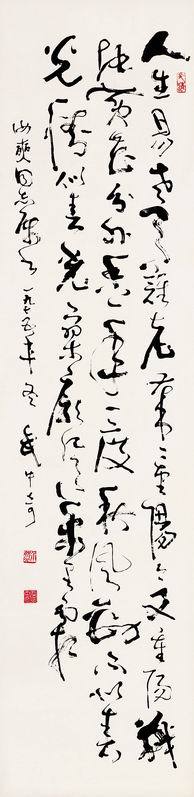 人生易老天難老歲歲重陽今又重陽戰
地黄花分外香一年一度秋风勁不似春
光勝似春光寥廓江天万里霜
同志 一九七五年冬 武中奇